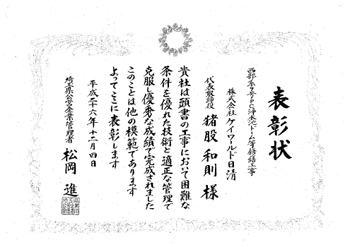 表彰状
株式会社ケイワールド日清
代表取締役 猪股和則様
貴社は頭書の工事において困難な
条件を優れた技術と適正な管理で
克服し優秀な成績で完成されました
このことは他の模範であります
よってここに表彰します
平成二十六年十二月四日
埼玉県公営企業管理者 松岡進